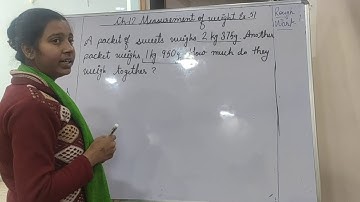 Ch.12 Measurement of weight Ex 51
Rough
Work
A packet of sweets weighs 2 kg 875g. Another
packet weighs 1 kg 950g. How much do they
weigh together ?